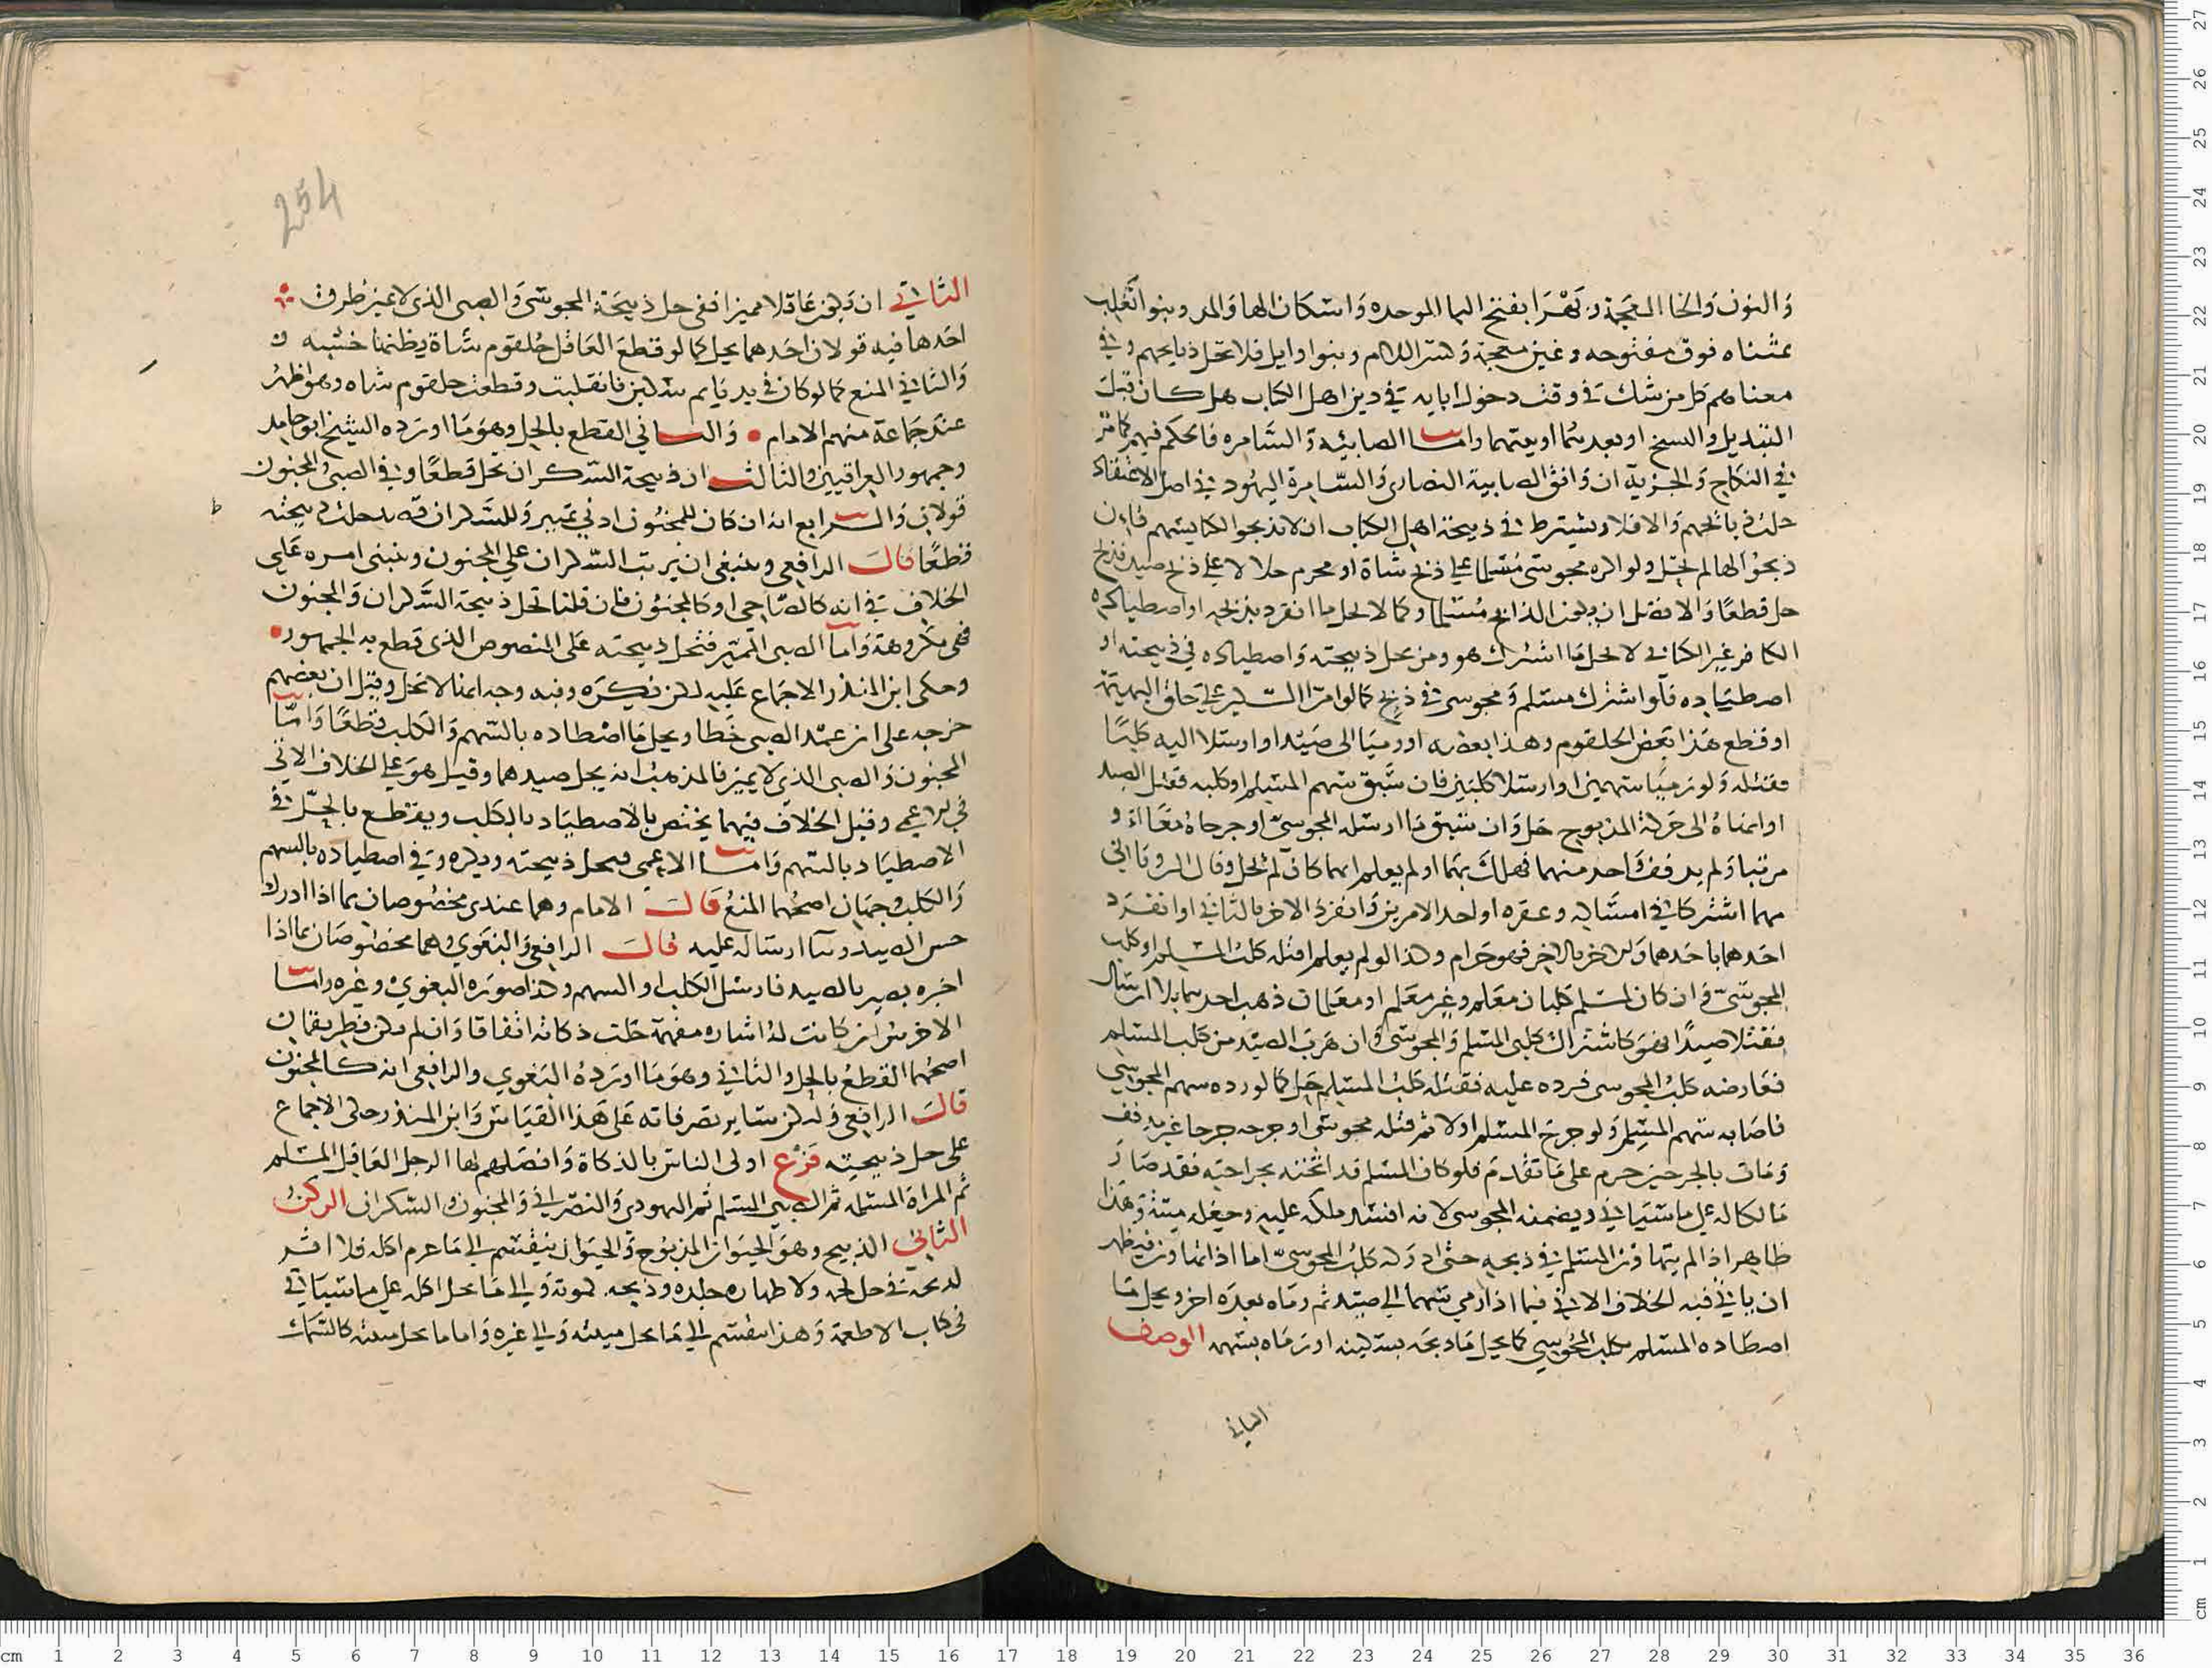 والنون والخا المعجمة وبَهْرَا بفتح البا الموحده واسكان الها والمد وبنوا تغلب
بمثناه فوق مفتوحه وغين معجمة وكسر اللام وبنوا وايل فلا تحل ذبايحهم وفي
معناهم كل من شك في وقت دخول ابايه في دين اهل الكتاب هل كان قبل
التبديل والنسخ او بعدهما او بينهما واما الصابئه والسَّامره فالحكم فيهم كما مر
في النكاح والجزية ان وافق الصابية النصارى والسّامرة اليهود في اصل الاعتقاد
حلت ذبايحهم والا فلا ويشترط في ذبيحة اهل الكتاب ان لا يذبحوا لكنايسهم فان
ذبحوا لها لم تحل ولو اكره مجوسي مُسلما على ذبح شاة او محرم حلالا على ذبح صيد فذبح
حل قطعًا والا فضل ان يكون الذابح مُسلما وكما لا يحل ما انفرد بذبحه او اصطياده
الكافر غير الكتابي لا يحل ما اشترك هو ومن تحل ذبيحته واصطياده في ذبيحته او
اصطياده فلو اشترك مسلم ومجوسي في ذبح كما لو امرّا السكين على حلق البهيمة
او قطع هذا بعض الحلقوم وهذا بعضه او رميا الى صَيْد او ارسلا اليه كلبًا
فقتله ولو رميا سهمين او ارسلا كلبين فان سَبق سهم المسلم او كلبه فقتل الصيد
او انهاهُ الى حركة المذبوح حل وان سبق ما ارسله المجوسيّ او جرحاهُ معًا او
مرتبا ولم يدفف واحد منهما فهلك بهما او لم يعلم ايهما كان لم تحل وقال الروياني
مهما اشتركا في امساكه وعقره او احد الامرين وانفرد الاخر بالثاني او انفرد
احدهما باحدهما والاخر بالاخر فهو حَرام وكذا لو لم يعلم اقتله كلبُ المسلم او كلب
المجوسيّ وان كان لمسلم كلبان معلم وغير معلم او معلمان ذهب احدهما بلا ارسال
فقتلا صيدًا فهو كاشتراك كلبي المسلم والمجوسي وان هرب الصيد من كلب المسلم
فعارضه كلبُ المجوسي فرده عليه فقتله كلبُ المسلم حَل كما لو رده سهم المجوسي
فاصابه سهم المسلم ولو جرح المسلم اولا ثم قتله مجوسي او جرحه جرحا غير مدفف
ومات بالجرحين حرم على ما تقدم فلو كان المسلم قد اثخنه بجراحته فقد صار
مالكا له على ما سَيَاتي ويضمنه المجوسي لانه افسد ملكه عليه وجعله ميتة وهذا
ظاهر اذا لم يتهاون المسلم في ذبحه حتى ادركه كلب المجوسيّ اما اذا تهاون فيظهر
ان ياتي فيه الخلاف الاتي فيما اذا رمي سهما الى صيد ثم رماه بعده اخر ويحل ما
اصطاده المسلم بكلب المجوسي كما يحل ما ذبحه بسكينه او رماه بسهمه الوصف
الثاني
254
الثاني ان يكون عاقلا مميزا ففي حل ذبيحة المجوسي والصبي الذي لا يميز طرق
احدها فيه قولان احدهما يحل كما لو قطع الغافل حُلقوم شاة يظنها خشبه و
والثاني المنع كما لو كان في يد نايم سكين فانقلبت وقطعت حلقوم شاه وهو اظهرُ
عند جماعة منهم الامام والثاني القطع بالحل وهو ما اورده الشيخ ابو حامد
وجمهور العراقيين والثالث ان ذبيحة السّكران تحل قطعًا وفي الصبي والمجنون
قولان والرابع انه ان كان للمجنون ادنى تمييز وللسكران قصد حلت ذبيحته
قطعًا قال الرافعي وينبغي ان يرتب السّكران على المجنون وينبني امره على
الخلاف في انه كالصَّاحي او كالمجنون فان قلنا تحل ذبيحة السَّكران والمجنون
فهي مكروهة واما الصبي المميّز فتحل ذبيحته على المنصوص الذي قطع به الجمهور
وحكى ابن المنذر الاجماع عليه لكن تكره وفيه وجه انها لا تحل وقيل ان بعضهم
خرجه على ان عمد الصبي خَطا ويحل ما اصطاده بالسَّهم والكلب قطعًا وامّا
المجنون والصبي الذي لا يميز فالمذهب انه يحل صيدهما وقيل هو على الخلاف الاتي
في الاعمى وقيل الخلاف فيهما يختص بالاصطياد بالكلب ويقطع بالحِلّ في
الاصطياد بالسّهم وامّا الاعمى فتحل ذبيحته ويكره وفي اصطياده بالسهم
والكلب وجهان اصحهما المنعُ قال الامام وهما عندي مخصُوصان بما اذا ادرك
حس الصيد وبنا ارساله عليه قال الرافعي والبغوي وهما مخصُوصَان بما اذا
اخبره بصير بالصيد فارسل الكلب او السهم وكذا صوره البغوي وغيره واما
الاخرس ان كانت له اشاره مفهمة حَلت ذكاته اتفاقا وان لم يكن فطريقان
اصحهما القطعُ بالحل والثاني وهو ما اوردهُ البغوي والرافعي انه كالمجنون
قال الرافعي ولتكن ساير تصرفاته على هذا القيَاس وابن المنذر حكى الاجماع
على حل ذبيحته فرع اولى الناس بالذكاة وافضلهم لها الرجل العَاقل المسلم
ثم المراة المسلمه ثم الصبي المسلم ثم اليهودي والنصراني والمجنون والسّكران الركن
الثاني الذبيح وهو الحيوان المذبُوح والحيوان ينقسم الى ما حرم اكله فلا اثر
لذبحه في حل لحمه ولا طهاره جلده وذبحه كموته والى ما يحل اكله على ما سياتي
في كتاب الاطعمة وهذا ينقسم الى ما يحل ميتته والى غيره واما ما تحل ميتته كالسَّمك